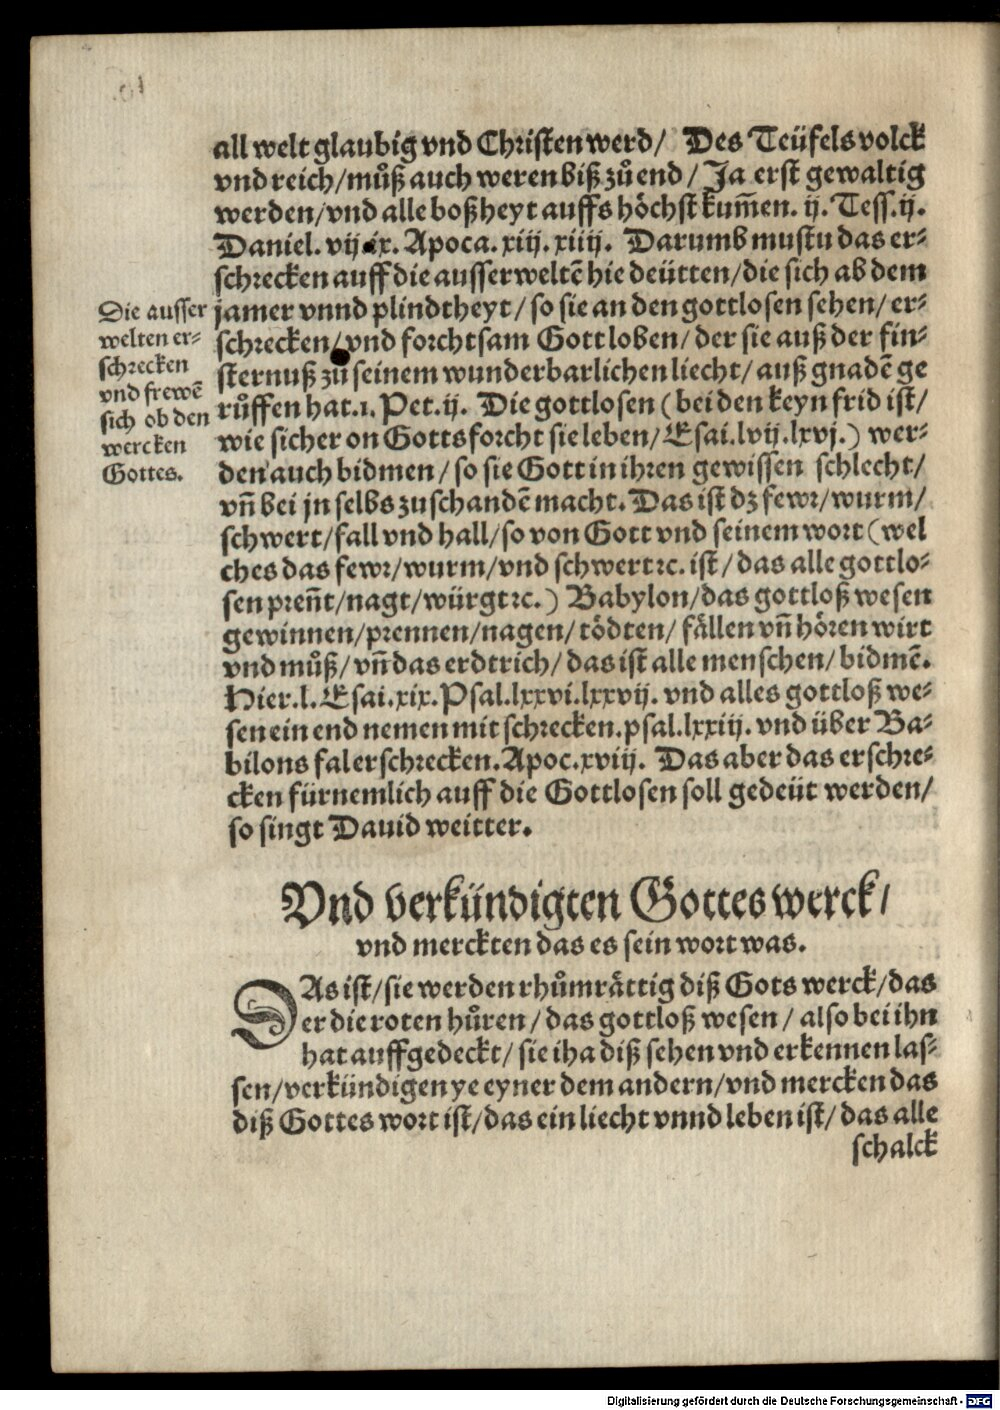 all welt glaubig vnd Christen werd/ Des Teüfels volck
vnd reich/ můß auch weren biß zů end/ Ja erst gewaltig
werden/ vnd alle boßheyt auffs höchst kum̃en. ij. Tess. ij.
Daniel. vij. ix. Apoca. xiij. xiiij. Darumb mustu das er⸗
schrecken auff die ausserweltẽ hie deütten/ die sich ab dem
jamer vnnd plindtheyt/ so sie an den gottlosen sehen/ er⸗
schrecken/ vnd forchtsam Gott loben/ der sie auß der fin⸗
sternuß zů seinem wunderbarlichen liecht/ auß gnadẽ ge
růffen hat. 1. Pet. ij. Die gottlosen (bei den keyn frid ist/
wie sicher on Gotts forcht sie leben/ Esai. lvij. lxvj.) wer⸗
den auch bidmen/ so sie Gott in ihren gewissen schlecht/
vñ bei jn selbs zuschandẽ macht. Das ist dz fewr/ wurm/
schwert/ fall vnd hall/ so von Gott vnd seinem wort (wel
ches das fewr/ wurm/ vnd schwert ꝛc. ist/ das alle gottlo⸗
sen preñt/ nagt/ würgt ꝛc.) Babylon/ das gottloß wesen
gewinnen/ prennen/ nagen/ tödten/ fällen vñ hören wirt
vnd můß/ vñ das erdtrich/ das ist alle menschen/ bidmẽ.
Hier. l. Esai. xix. Psal. lxxvi. lxxvij. vnd alles gottloß we⸗
sen ein end nemen mit schrecken. psal. lxxiij. vnd über Ba⸗
bilons fal erschrecken. Apoc. xviij. Das aber das erschre⸗
cken fürnemlich auff die Gottlosen soll gedeüt werden/
so singt Dauid weitter.
Die ausser
welten er⸗
schrecken
vnd frewẽ
sich ob den
wercken
Gottes.
Vnd verkündigten Gottes werck/
vnd merckten das es sein wort was.
DAs ist/ sie werden rhůmrättig diß Gots werck/ das
er die roten hůren/ das gottloß wesen/ also bei ihn
hat auffgedeckt/ sie iha diß sehen vnd erkennen las⸗
sen/ verkündigen ye eyner dem andern/ vnd mercken das
diß Gottes wort ist/ das ein liecht vnnd leben ist/ das alle
schalck
Digitalisierung gefördert durch die Deutsche Forschungsgemeinschaft - DFG